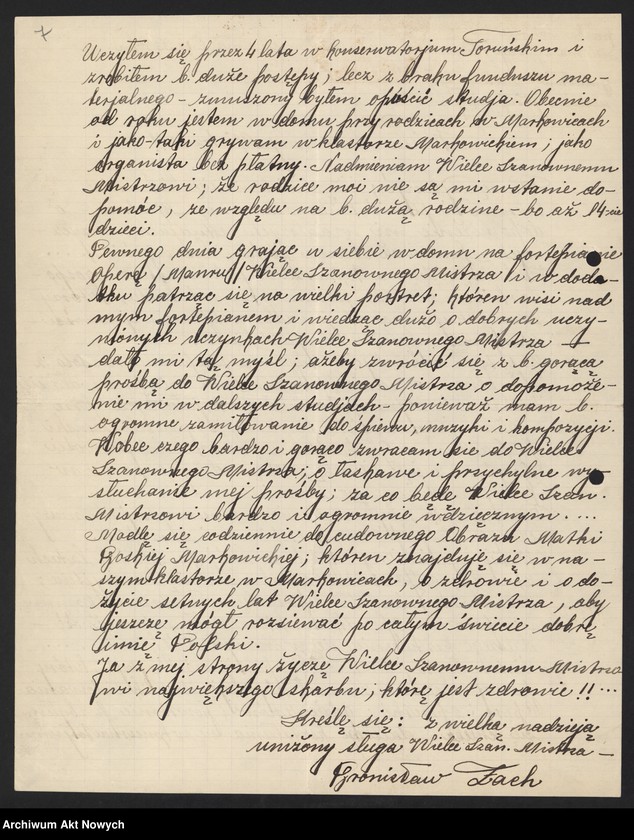 Uczyłem się przez 4 lata w konserwatorjum Toruńskim i
zrobiłem b. duże postępy; lecz z braku funduszu ma-
terjalnego - zmuszony byłem opuścić studja. Obecnie
od roku jestem w domu przy rodzicach w Markowicach
i jako-taki grywam w klasztorze Markowickiem; jako
organista bez płatny. Nadmieniam Wielce Szanownemu
Mistrzowi; że rodzice moi nie są mi wstanie do-
pomóc, ze względu na b. dużą rodzine - bo aż 14-cie
dzieci.
Pewnego dnia grając u siebie w domu na fortepianie
Operę /Manru/ Wielce Szanownego Mistrza i w doda-
tku patrząc się na wielki portret; któren wisi nad
mym fortepianem i wiedząc dużo o dobrych uczy-
nionych uczynkach Wielce Szanownego Mistrza -
dało mi tą myśl; ażeby zwrócić się z b. gorącą
prośbą do Wielce Szanownego Mistrza o dopomoże-
nie mi w dalszych studjach - ponieważ mam b.
ogromne zamiłowanie do śpiewu, muzyki i kompozycji.
Wobec czego bardzo i gorąco zwracam się do Wielce
Szanownego Mistrza; o łaskawe i przychylne wy-
słuchanie mej prośby; za co będę Wielce Szan.
Mistrzowi bardzo i ogromnie wdzięcznym. ....
Modlę się codziennie do cudownego Obrazu Matki
Boskiej Markowickiej; któren znajduje się w na-
szym klasztorze w Markowicach, o zdrowie i o do-
życie setnych lat Wielce Szanownego Mistrza, aby
jeszcze mógł rozsiewać po całym świecie dobre
imię Polski.
Ja z mej strony życzę Wielce Szanownemu Mistrzo
wi największego skarbu; które jest zdrowie!! ...
Kreślę się: z wielką nadzieją
uniżony sługa Wielce Szan. Mistrza -
Bronisław Zach
Archiwum Akt Nowych